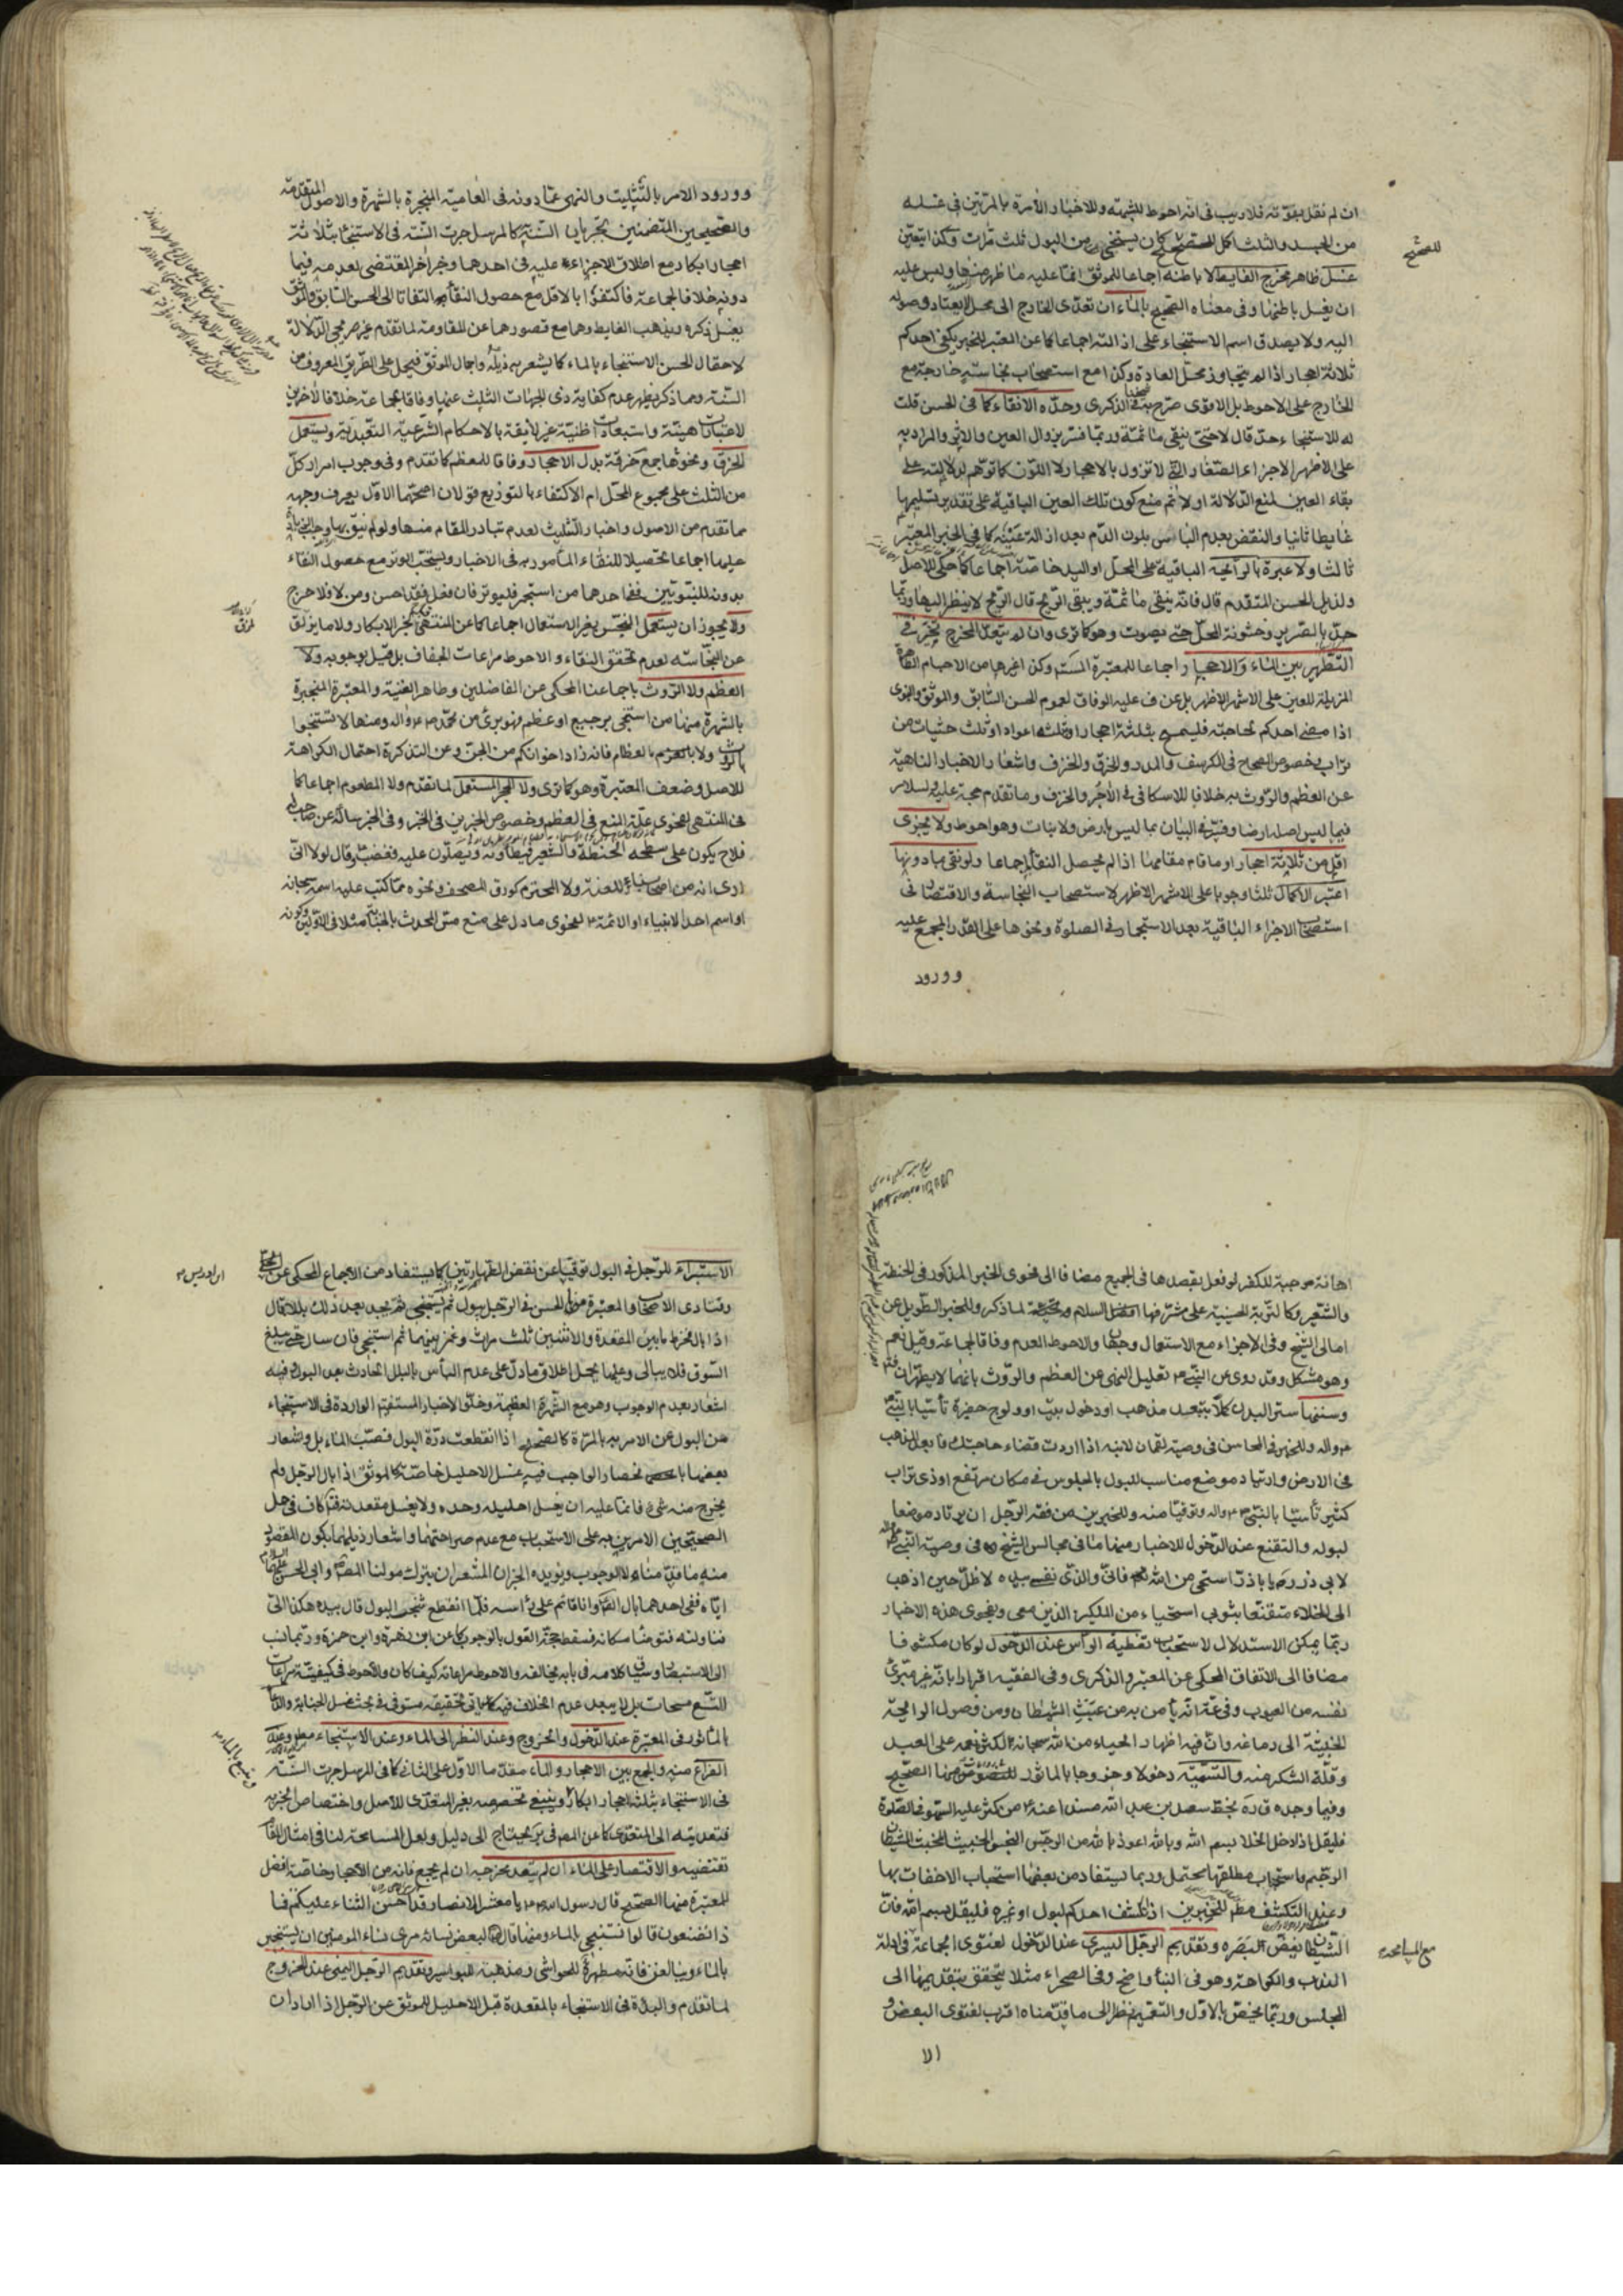 ان لم نقل بقوته فلا ريب في انه احوط للشبهة وللاخبار الآمرة بالمرتين في غسله
من الجسد والثلث اكمل للصحيح كان يستنجي من البول ثلث مرات وكذا يتعين
للصحيح
غسل ظاهر مخرج الغايط لا باطنه اجماعا للموثق انما عليه ما ظهر منها وليس عليه
ان يغسل باطنها وفي معناه الصحيح بالماء ان تعدى الخارج الى محل الاعتاد وصوله
اليه ولا يصدق اسم الاستنجاء على ازالته اجماعا كما عن المعتبر للخبر يكفي احدكم
ثلاثة احجار اذا لم يتجاوز محل العادة وكذا مع استصحاب نجاسته خارجة مع
الخارج على الاحوط بل الاقوى صرح به في الذكرى وحده الانقاء كما في الحسن قلت
له للاستنجاء حد قال لا حتى ينقى ما ثمة وربما فسر بزوال العين والاثر والمراد به
على الاظهر الاجزاء الصغار التي لا تزول بالاحجار لا اللون كما توهم لدلالته على
بقاء العين لمنع الدلالة اولا ثم منع كون تلك العين الباقية على تقدير تسليمها
غايطا ثانيا والنقض بعدم الباس بلون الدم بعد ازالة عينه كما في الخبر المعتبر
ثالثا ولا عبرة بالرايحة الباقية على المحل او اليد خاصة اجماعا كما حكي للاصل
ولذيل الحسن المتقدم قال فانه ينقى ما ثمة ويبقى الريح قال الريح لا ينظر اليها وربما
حد بالصرير وخشونة المحل حتى يصوت وهو كما ترى وان لم يتعد المخرج تخير في
التطهير بين الماء والاحجار اجماعا للمعتبرة المستفيضة وكذا غيرها من الاجسام القالعة
المزيلة للعين على الاشهر الاظهر بل عن ف عليه الوفاق لعموم الحسن السابق والموثق والنبوي
اذا مضى احدكم لحاجته فليمسح بثلثة احجار او بثلثة اعواد او ثلث حثيات من
تراب وخصوص الصحاح في الكرسف والمدر والخرق والخزف واشعار الاخبار الناهية
عن العظم والروث به خلافا للاسكافي في الآجر والخزف وما تقدم حجة عليه ولسلار
فيما ليس اصله ارضا وقيده في البيان بما ليس بارض ولا نبات وهو احوط ولا يجزى
اقل من ثلاثة احجار او ما قام مقامها اذا لم يحصل النقاء اجماعا ولو نقى بما دونها
اعتبر الاكمال ثلثا وجوبا على الاشهر الاظهر لاستصحاب النجاسة والاقتصار في
استصحاب الاجزاء الباقية بعد الاستجمار في الصلوة ونحوها على القدر المجمع عليه
وورود
وورود الامر بالتثليت والنهي عما دونه في العامية المنجبرة بالشهرة والاصول المتقدمة
والصحيحين المتضمنين بجريان السنة كالمرسل جرت السنة في الاستنجاء بثلاثة
احجار ابكار مع اطلاق الاجزاء عليه في احدهما وجزاخر المقتضى لعدمه فيما
دونه خلافا لجماعة فاكتفوا بالاقل مع حصول النقاء به التفاتا الى الحسن السابق والموثق
يغسل ذكره ويذهب الغايط وهما مع قصورهما عن المقاومة لما تقدم غير صريحي الدلالة
لاحتمال الحسن الاستنجاء بالماء كما يشعر به ذيله واجمال الموثق فيحمل على الطريق المعروف من
السنة ومما ذكر يظهر عدم كفاية ذي الجهات الثلث عنها وفاقا لجماعة خلافا لآخرين
لاعتبارات هينة واستبعادات ظنية غير لايقة بالاحكام الشرعية التعبدية ويستعمل
الخرق ونحوها جمع خرقة بدل الاحجار وفاقا للمعظم كما تقدم وفي وجوب امرار كل
من الثلث على مجموع المحل ام الاكتفاء بالتوزيع قولان اصحهما الاول يعرف وجهه
مما تقدم من الاصول واخبار التثليث لعدم تبادر المقام منها ولو لم ينق بها وجب الزيادة
عليها اجماعا تحصيلا للنقاء المأمور به في الاخبار ويستحب الوتر مع حصول النقاء
بدونه للنبويين ففي احدهما من استجمر فليوتر فان فعل فقد احسن ومن لا فلا حرج
ولا يجوز ان يستعمل النجس بغير الاستعمال اجماعا كما عن المنتهى لخبر الابكار ولا ما يزلق
عن النجاسة لعدم تحقق النقاء والاحوط مراعات الجفاف بل قيل بوجوبه ولا
العظم ولا الروث باجماعنا المحكي عن الفاضلين وظاهر الغنية والمعتبرة المنجبرة
بالشهرة منها من استنجى برجيع او عظم فهو برئ من محمد ص واله ومنها لا تستنجوا
بالروث ولا بالعظام فانه زاد اخوانكم من الجن وعن التذكرة احتمال الكراهة
للاصل وضعف المعتبرة وهو كما ترى ولا الحجر المستعمل لما تقدم ولا المطعوم اجماعا كما
في المنتهى لفحوى علة المنع في العظم وخصوص الخبرين في الخبز وفي الخبر سالته عن صاحب
فلاح يكون على سطحه الحنطة والشعير فيطأونه ويصلون عليه فغضب وقال لولا انى
ارى انه من اصحابنا للعنته ولا المحترم كورق المصحف ونحوه مما كتب عليه اسمه سبحانه
او اسم احد الانبياء او الائمة ع لفحوى ما دل على منع مس المحدث بالجنابة مثلا في الاولين وكونه
اهانة موجبة للكفر لو فعل بقصدها في الجميع مضافا الى فحوى الخبر المذكور في الحنطة
والشعير وكالتربة الحسينية على مشرفها افضل السلام والتحية لما ذكر وللخبر الطويل عن
امالي الشيخ وفي الاجزاء مع الاستعمال وجهان والاحوط العدم وفاقا لجماعة وقيل نعم
وهو مشكل وقد روى عن النبي ص تعليل النهي عن العظم والروث بانهما لا يطهران
وسننها ستر البدن كلا بتبعد مذهب او دخول بيت او ولوج حفيرة تأسيا بالنبي
ص واله وللخبر في المحاسن في وصية لقمان لابنه اذا اردت قضاء حاجتك فابعد المذهب
في الارض وارتياد موضع مناسب للبول بالجلوس في مكان مرتفع او ذي تراب
كثير تأسيا بالنبي ص واله وتوقيا منه وللخبرين من فقه الرجل ان يرتاد موضعا
لبوله والتقنع عند الدخول للاخبار منها ما في مجالس الشيخ ره في وصية النبي
لابي ذر ره يا باذر استحي من الله فاني والذي نفسي بيده لاظل حين اذهب
الى الخلاء متقنعا بثوبي استحياء من الملكين الذين معي وبفحوى هذه الاخبار
ربما يمكن الاستدلال لاستحباب تغطية الرأس عند الدخول لو كان مكشوفا
مضافا الى الاتفاق المحكي عن المعتبر والذكرى وفي الفقيه اقرارا بانه غير مبرئ
نفسه من العيوب وفي عة انه يأمن به من عبث الشيطان ومن وصول الرايحة
الخبيثة الى دماغه وان فيه اظهار الحياء من الله سبحانه لكثرة نعمه على العبد
وقلة الشكر منه والتسمية دخولا وخروجا بالماثور للنصوص منها الصحيح
وفيما وجده ق ره بخط سعد بن عبد الله مسندا عنه ع من كثر عليه السهو في الصلوة
فليقل اذا دخل الخلا بسم الله وبالله اعوذ بالله من الرجس النجس الخبيث المخبث الشيطان
الرجيم واستحباب مطلقها محتمل وربما يستفاد من بعضها استحباب الاخفات بها
وعند التكشف مطم للخبرين اذا انكشف احدكم لبول او غيره فليقل بسم الله فان
الشيطان يغض البصره وتقديم الرجل اليسرى عند الدخول لفتوى الجماعة في ادلة
الندب والكراهة وهو في البناء واضح وفي الصحراء مثلا يتحقق بتقديمها الى
المجلس وربما يخص بالاول والتعميم نظرا الى ما قدمناه اقرب لفتوى البعض و
الا
الاستبراء للرجل في البول توقيا عن نقض الطهارتين كما يستفاد من الاجماع المحكي عن الحلي
ابن ادريس
وفتاوى الاصحاب والمعتبرة منها الحسن في الرجل يبول ثم يستنجي ثم يجد بعد ذلك بللا قال
اذا بال فخرط ما بين المقعدة والانثيين ثلث مرات وغمز بينهما ثم استنجى فان سال حتى يبلغ
السوق فلا يبالي وعليها يحمل اطلاق ما دل على عدم البأس بالبلل الحادث بعد البول وفيه
اشعار بعدم الوجوب وهو مع الشهرة العظيمة وخلو الاخبار المستفيضة الواردة في الاستنجاء
من البول عن الامر به بالمرة كالصحيح اذا انقطعت درة البول فصب الماء بل واشعار
بعضها بانحصار الواجب فيه غسل الاحليل خاصة كالموثق اذا بال الرجل ولم
يخرج منه شئ فانما عليه ان يغسل احليله وحده ولا يغسل مقعدته كاف في حمل
الصحيحين الامرين به على الاستحباب مع عدم صراحتهما واشعار ذيلهما بكون المقصود
منه ما قدمناه لا الوجوب ويؤيده الخبران المشعران بترك مولنا الصادق وابي الحسن عليهما السلام
اياه ففي احدهما بال الصادق وانا قائم على رأسه فلما انقطع شخب البول قال بيده هكذا الي
فناولته فتوضأ مكانه فسقط حجة القول بالوجوب كما عن ابن زهرة وابن حمزة وربما نسب
الى الاستبصار وسياق كلامه في بابه يخالفه والاحوط مراعاته كيف كان والاحوط في كيفيته مراعات
التسع مسحات بل لا يبعد عدم الخلاف فيه كما ياتي تحقيقه مستوفى في بحث غسل الجنابة والدعاء
بالماثور في المعتبرة عند الدخول والخروج وعند النظر الى الماء وعند الاستنجاء مطم وعند
الفراغ منه والجمع بين الاحجار والماء مقدما الاول على الثاني كما في المرسل جرت السنة
في الاستنجاء بثلثة احجار ابكار ويتبع بالماء وينبغي تخصيصه بغير المتعدى للاصل واختصاص الخبر به
فتعديته الى المتعدى كما عن المعتبر يحتاج الى دليل ولعل المسامحة لنا في امثال المقام
تقتضيه والاقتصار على الماء ان لم يتعد مخرجه ان لم يجمع فانه من الاحجار خاصة افضل
للمعتبرة منها الصحيح قال رسول الله ص يا معشر الانصار قد احسن الثناء عليكم فما
ذا تصنعون قالوا نستنجي بالماء ومنها قال لبعض نسائه مري نساء المومنين ان يستنجين
بالماء ويبالغن فانه مطهرة للحواشي ومذهبة للبواسير وتقديم الرجل اليمنى عند الخروج
لما تقدم والبدأة في الاستنجاء بالمقعدة قبل الاحليل للموثق عن الرجل اذا اراد ان